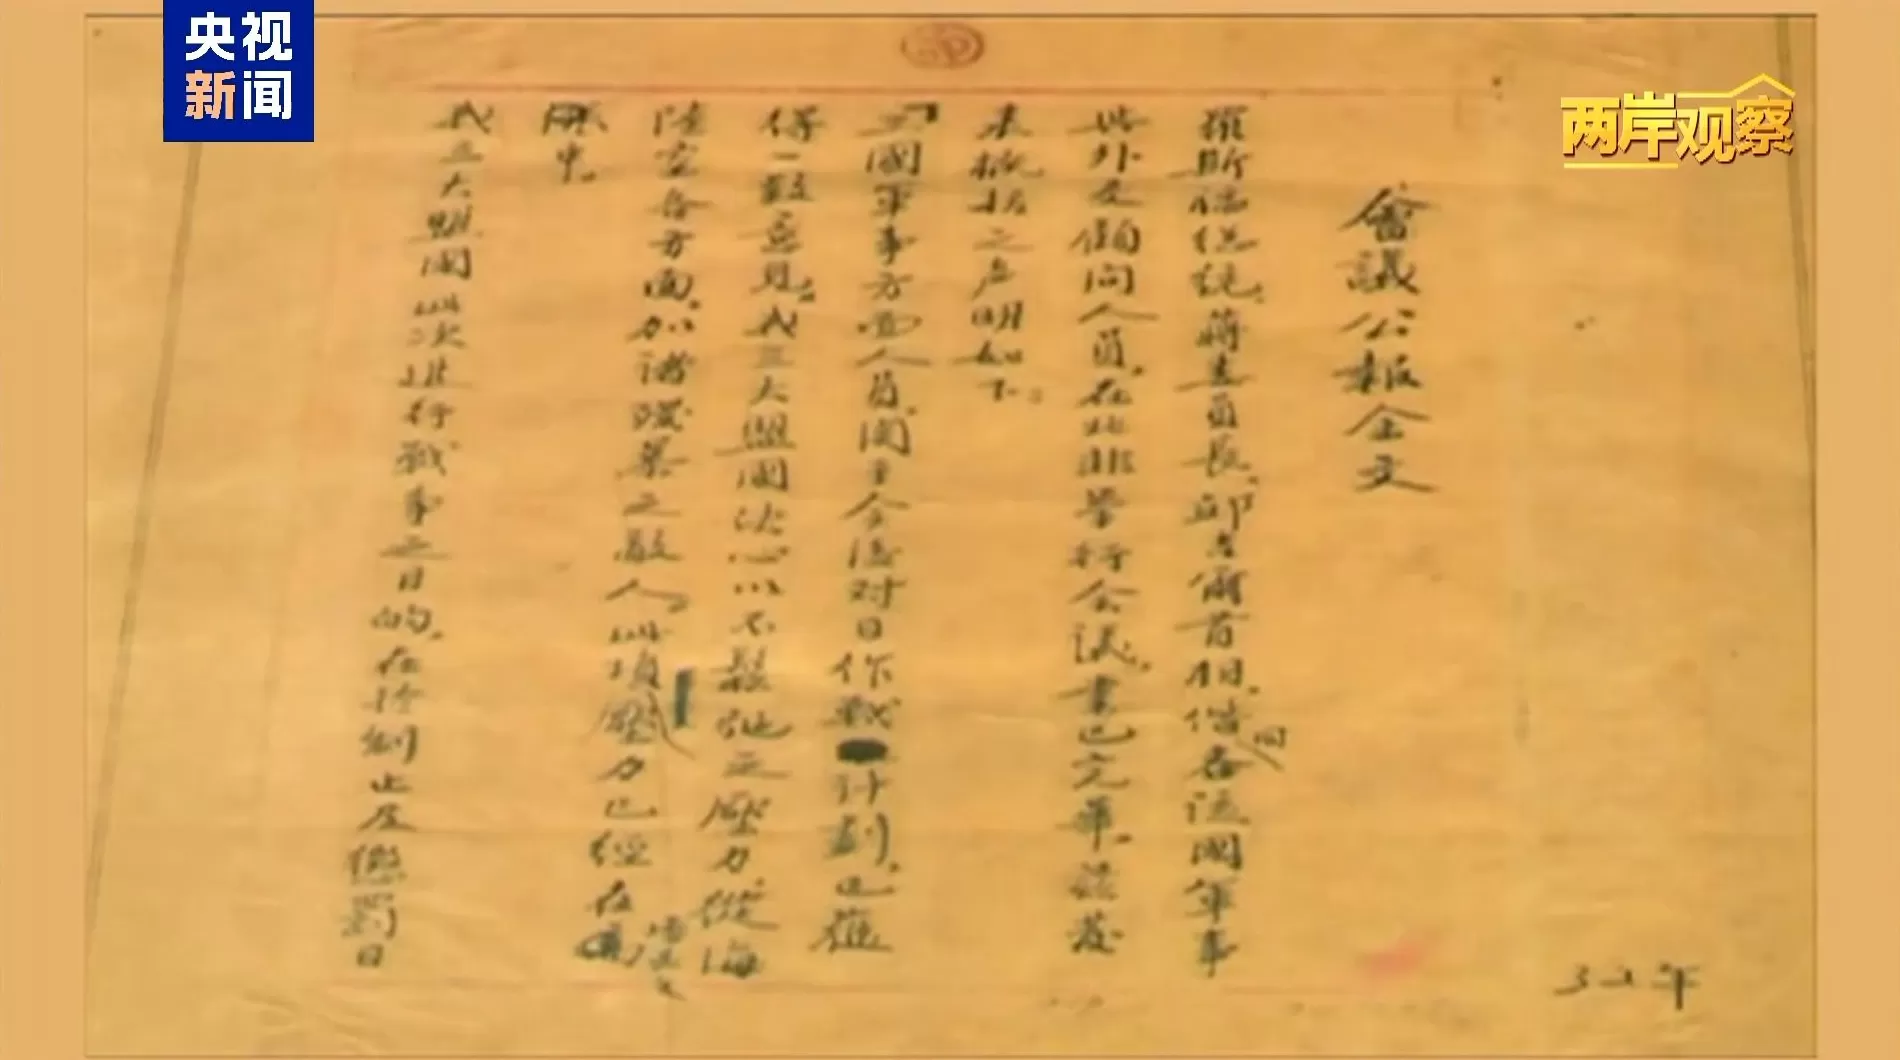 央视
新闻
两岸观察
會議公報全文
羅斯福總統、蔣委員長、邱吉爾首相、偕同各該國軍事
與外交顧問人員,在北非舉行会議,業已完畢,茲發
表概括之声明如下:
三國軍事方面人員,関于今後对日作戰計劃,已獲
得一致意見,我三大盟國決心以不鬆弛之壓力,從海
陸空各方面,加諸殘暴之敵人,此項壓力已經在
中。
我三大盟國此次進行戰爭之目的,在於制止及懲罰日
32年